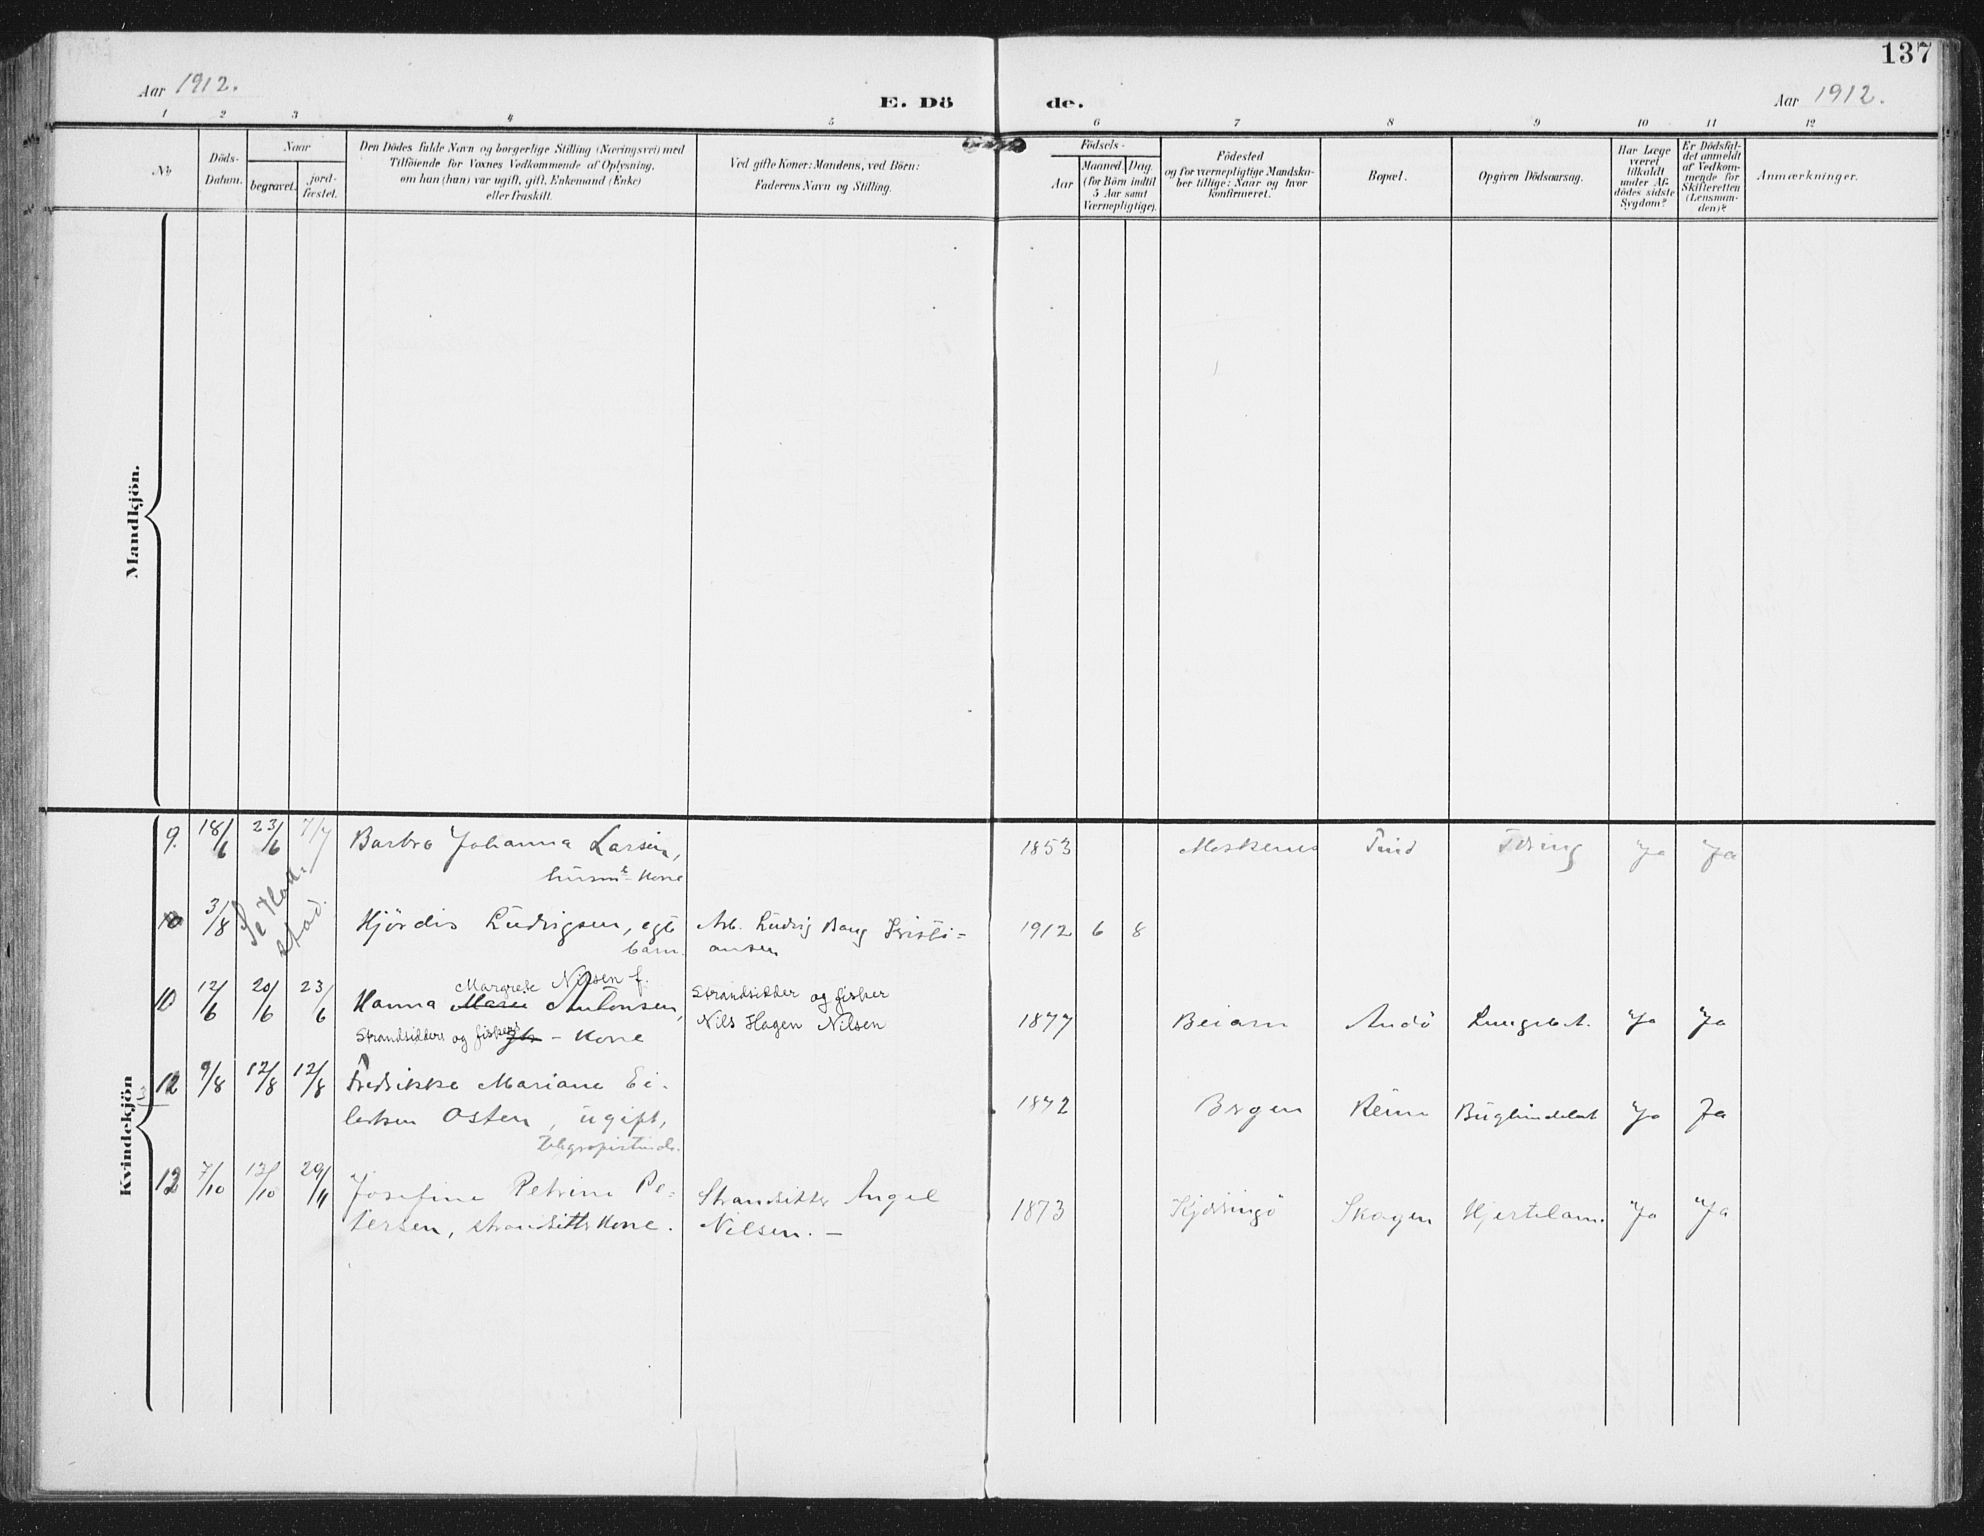 137
Aar 1912.
E. Dö
de.
Aar 1912.
1 2 3 4 5 6 7 8 9 10 11 12
Nr
Döds-
Datum.
Naar
begravet.
jord-
fæstet.
Den Dödes fulde Navn og borgerlige Stilling (Næringsvei) med
Tilföiende for Voxnes Vedkommende af Oplysning,
om hun (han) var ugift, gift, Enkemand (Enke)
eller fraskilt.
Ved gifte Koner: Mandens, ved Börn:
Faderens Navn og Stilling.
Födsels-
Aar
Maaned
Dag
(for Börn indtil
5 Aar samt
Værnepligtige).
Födested
og for værnepligtige Mandska-
ber tillige: Naar og hvor
konfirmeret.
Bopæl.
Opgiven Dödsaarsag.
Har Læge
været
tilkaldt
under Af-
dödes sidste
Sygdom?
Er Dödsfal-
det anmeldt
af Vedkom-
mende for
Skifteretten
(Lensman-
den)?
Anmærkninger.
Mandkjön.
Kvindekjön
9. 18/6 23/6 7/7 Barbro Johanna Larsen, 1853 Moskenes Tind Tæring Ja Ja
husm - Kone
10 3/8 Hjördis Ludvigsen, egt Arb. Ludvig Bang Kristi= 1912 6 8
barn. ansen
Margrete Nilsen f.
10 12/6 20/6 23/6 Hanna Marie Antonsen, Strandsidder og fisker
Nils Hagen Nilsen 1877 Beiarn Andö Ja Ja
Strandsidder og fisker - Kone
12 9/8 12/8 12/8 Fredrikke Mariane Ei-
lertsen Osten, ugift, 1872 Bergen Reine Ja Ja
7/10 12/10 29/11 Josefine Petrine Pe=
tersen, strandsitter Kone. Strandsitter Angel
Nilsen. - 1873 Kjerringö Skagen Hjertelam. Ja Ja